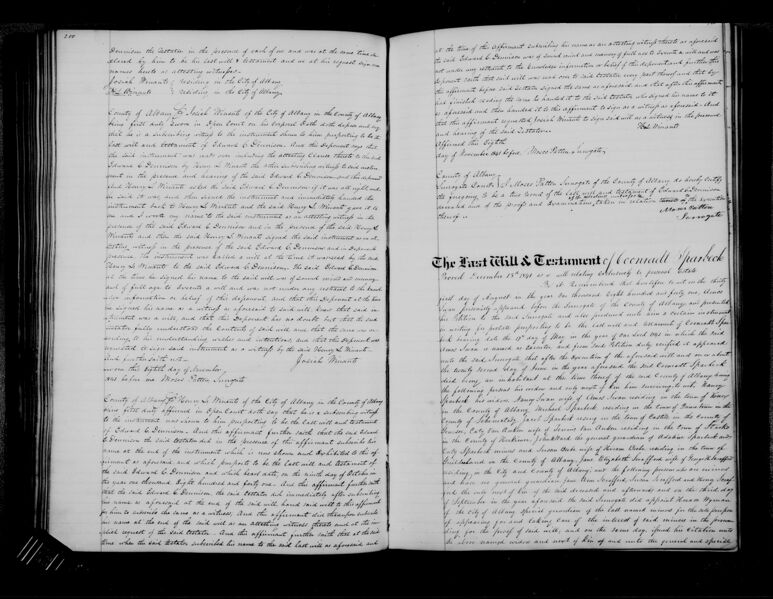 200
Dennison the Testator in the presence of each of us and was at the same time de
clared by him to be his last will & testament and we at his request sign our
names hereto as attesting witnesses
Josiah Winants residing in the City of Albany
H L Winants residing in the City of Albany
County of Albany Josiah Winants of the City of Albany in the County of Albany
being first duly sworn in Open Court on his corporal Oath doth depose and say
that he is a subscribing witness to the instrument shown to him purporting to be the
last will and testament of Edward C. Dennison. And this deponent says that
the said instrument was read over including the attesting Clause thereto to the said
Edward C. Dennison by Henry L. Winants the other subscribing witness to said instru
ment in the presence and hearing of the said Edward C. Dennison and this deponent
and Henry L. Winants asked the said Edward C. Dennison if it was all right and
he said it was and then signed the instrument and immediately handed the
instrument back to Henry L. Winants and the said Henry L. Winants gave it to
me and I wrote my name to the said instrument as an attesting witness in the
presence of the said Edward C. Dennison and in the presence of the said Henry L.
Winants and then the said Henry L. Winants signed the said instrument as an at
testing witness in the presence of the said Edward C. Dennison and in Deponents
presence. The instrument was called a will at the time it was read by the said
Henry L. Winants to the said Edward C. Dennison. The said Edward C. Dennison
at the time he signed his name to the said will was of sound mind and memory
and of full age to execute a will and was not under any restraint to the know
ledge information or belief of this deponent and that this Deponent at the time
he signed his name as a witness as aforesaid to said will knew that said in
strument was a will, and that this Deponent has no doubt but that the said
testator fully understood the Contents of said will and that the same was ac
cording to his understanding wishes and intentions and that this Deponent was
requested to sign said instrument as a witness by the said Henry L. Winants.
And further saith not
Josiah Winants
Sworn this eighth day of November
1841 before me Moses Patten Surrogate
County of Albany Henry L. Winants of the City of Albany in the County of Albany
being first duly affirmed in Open Court doth say that he is a subscribing witness
to the instrument now shown to him purporting to be the last will and testament
of Edward C. Dennison. And this affirmant further saith that the said Edward
C. Dennison the said testator did in the presence of this affirmant subscribe his
name at the end of the instrument which is now shown and exhibited to this af
firmant as aforesaid and which purports to be the last will and testament of
the said Edward C. Dennison and which bears date on the ninth day of October in
the year one thousand Eight hundred and forty one. And this affirmant further saith
that the said Edward C. Dennison the said testator did immediately after subscribing
his name as aforesaid at the end of the said will hand said will to this affirmant
for him to subscribe the same as a witness. And this affirmant did thereupon subscribe
his name at the end of the said will as an attesting witness thereto and at the
request of the said testator. And this affirmant further saith that at the said
time when the said testator subscribed his name to the said last will as aforesaid and
at the time of this affirmant subscribing his name as an attesting witness thereto as aforesaid
the said Edward C. Dennison was of sound mind and memory of full age to execute a will and was
not under any restraint to the knowledge information or belief of this deponent and further this
deponent saith that said will was read over to said testator every part thereof and that by
this affirmant before said testator signed the same as aforesaid and that after this affirmant
had finished reading the same he handed it to the said testator who signed his name to it
as aforesaid and then handed it to this affirmant to sign as a witness as aforesaid. And
that this affirmant requested Josiah Winants to sign said will as a witness in the presence
and hearing of the said Testator.
H L Winants
Affirmed this Eighth
day of November 1841 before Moses Patten Surrogate
County of Albany
Surrogates Court I Moses Patten Surrogate of the County of Albany do hereby certify
the foregoing to be a true record of the last will and testament of Edward C. Dennison
deceased and of the proofs and examinations taken in relation to the execution
thereof
Moses Patten
Surrogate
The Last Will & Testament of Coonradt Sparbeck
Proved December 13th 1841 as a will relating exclusively to personal estate
Be it Remembered that heretofore to wit on the thirty
first day of August in the year One thousand Eight hundred and forty one, Amos
Swan personally appeared before the Surrogate of the County of Albany and presented
his Petition to the said Surrogate and also produced unto him a certain instrument
in writing for probate purporting to be the last will and testament of Coonradt Spar
beck bearing date the day of May in the year of our Lord 1841 in which the said
Amos Swan is named as Executor and from said Petition duly verified it appeared
unto the said Surrogate that after the execution of the aforesaid will and on or about
the twenty second day of June in the year aforesaid the said Coonradt Sparbeck
died being an inhabitant at the time thereof of the said County of Albany leaving
the following persons his widow and only next of kin him surviving to wit Nancy
Sparbeck his widow, Nancy Swan wife of Amos Swan residing in the town of
in the County of Albany, Michael Sparbeck residing in the town of in the
County of Schenectady, Jacob Sparbeck residing in the town of in the County of
wife of residing in the town of
in the County of Herkimer, the general guardian of Sparbeck and
Sparbeck minors and wife of residing in the town of
Guilderland in the County of Albany, Jane Elizabeth Scrafford wife of
residing in the City and County of Albany and the following persons who are minors
and have no general guardian Jane Ann Scrafford, Susan Scrafford and Henry Scraf
ford the only next of kin of the said deceased and afterwards and on the third day
of September in the year aforesaid the said Surrogate did appoint Hanson Wyman
of the City of Albany special guardian of the last named minors for the sole purpose
of appearing for and taking care of the interest of said minors in the procee
ding for the proof of said will, and on the same day issued his Citation unto
the above named widow and next of kin of and unto the general and special